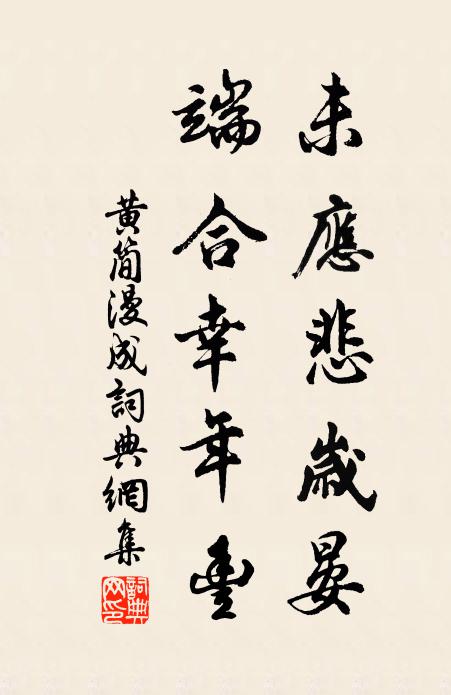 未應悲歲晏
端合幸年豐
黃簡漫成詞典網集
詞典
网印